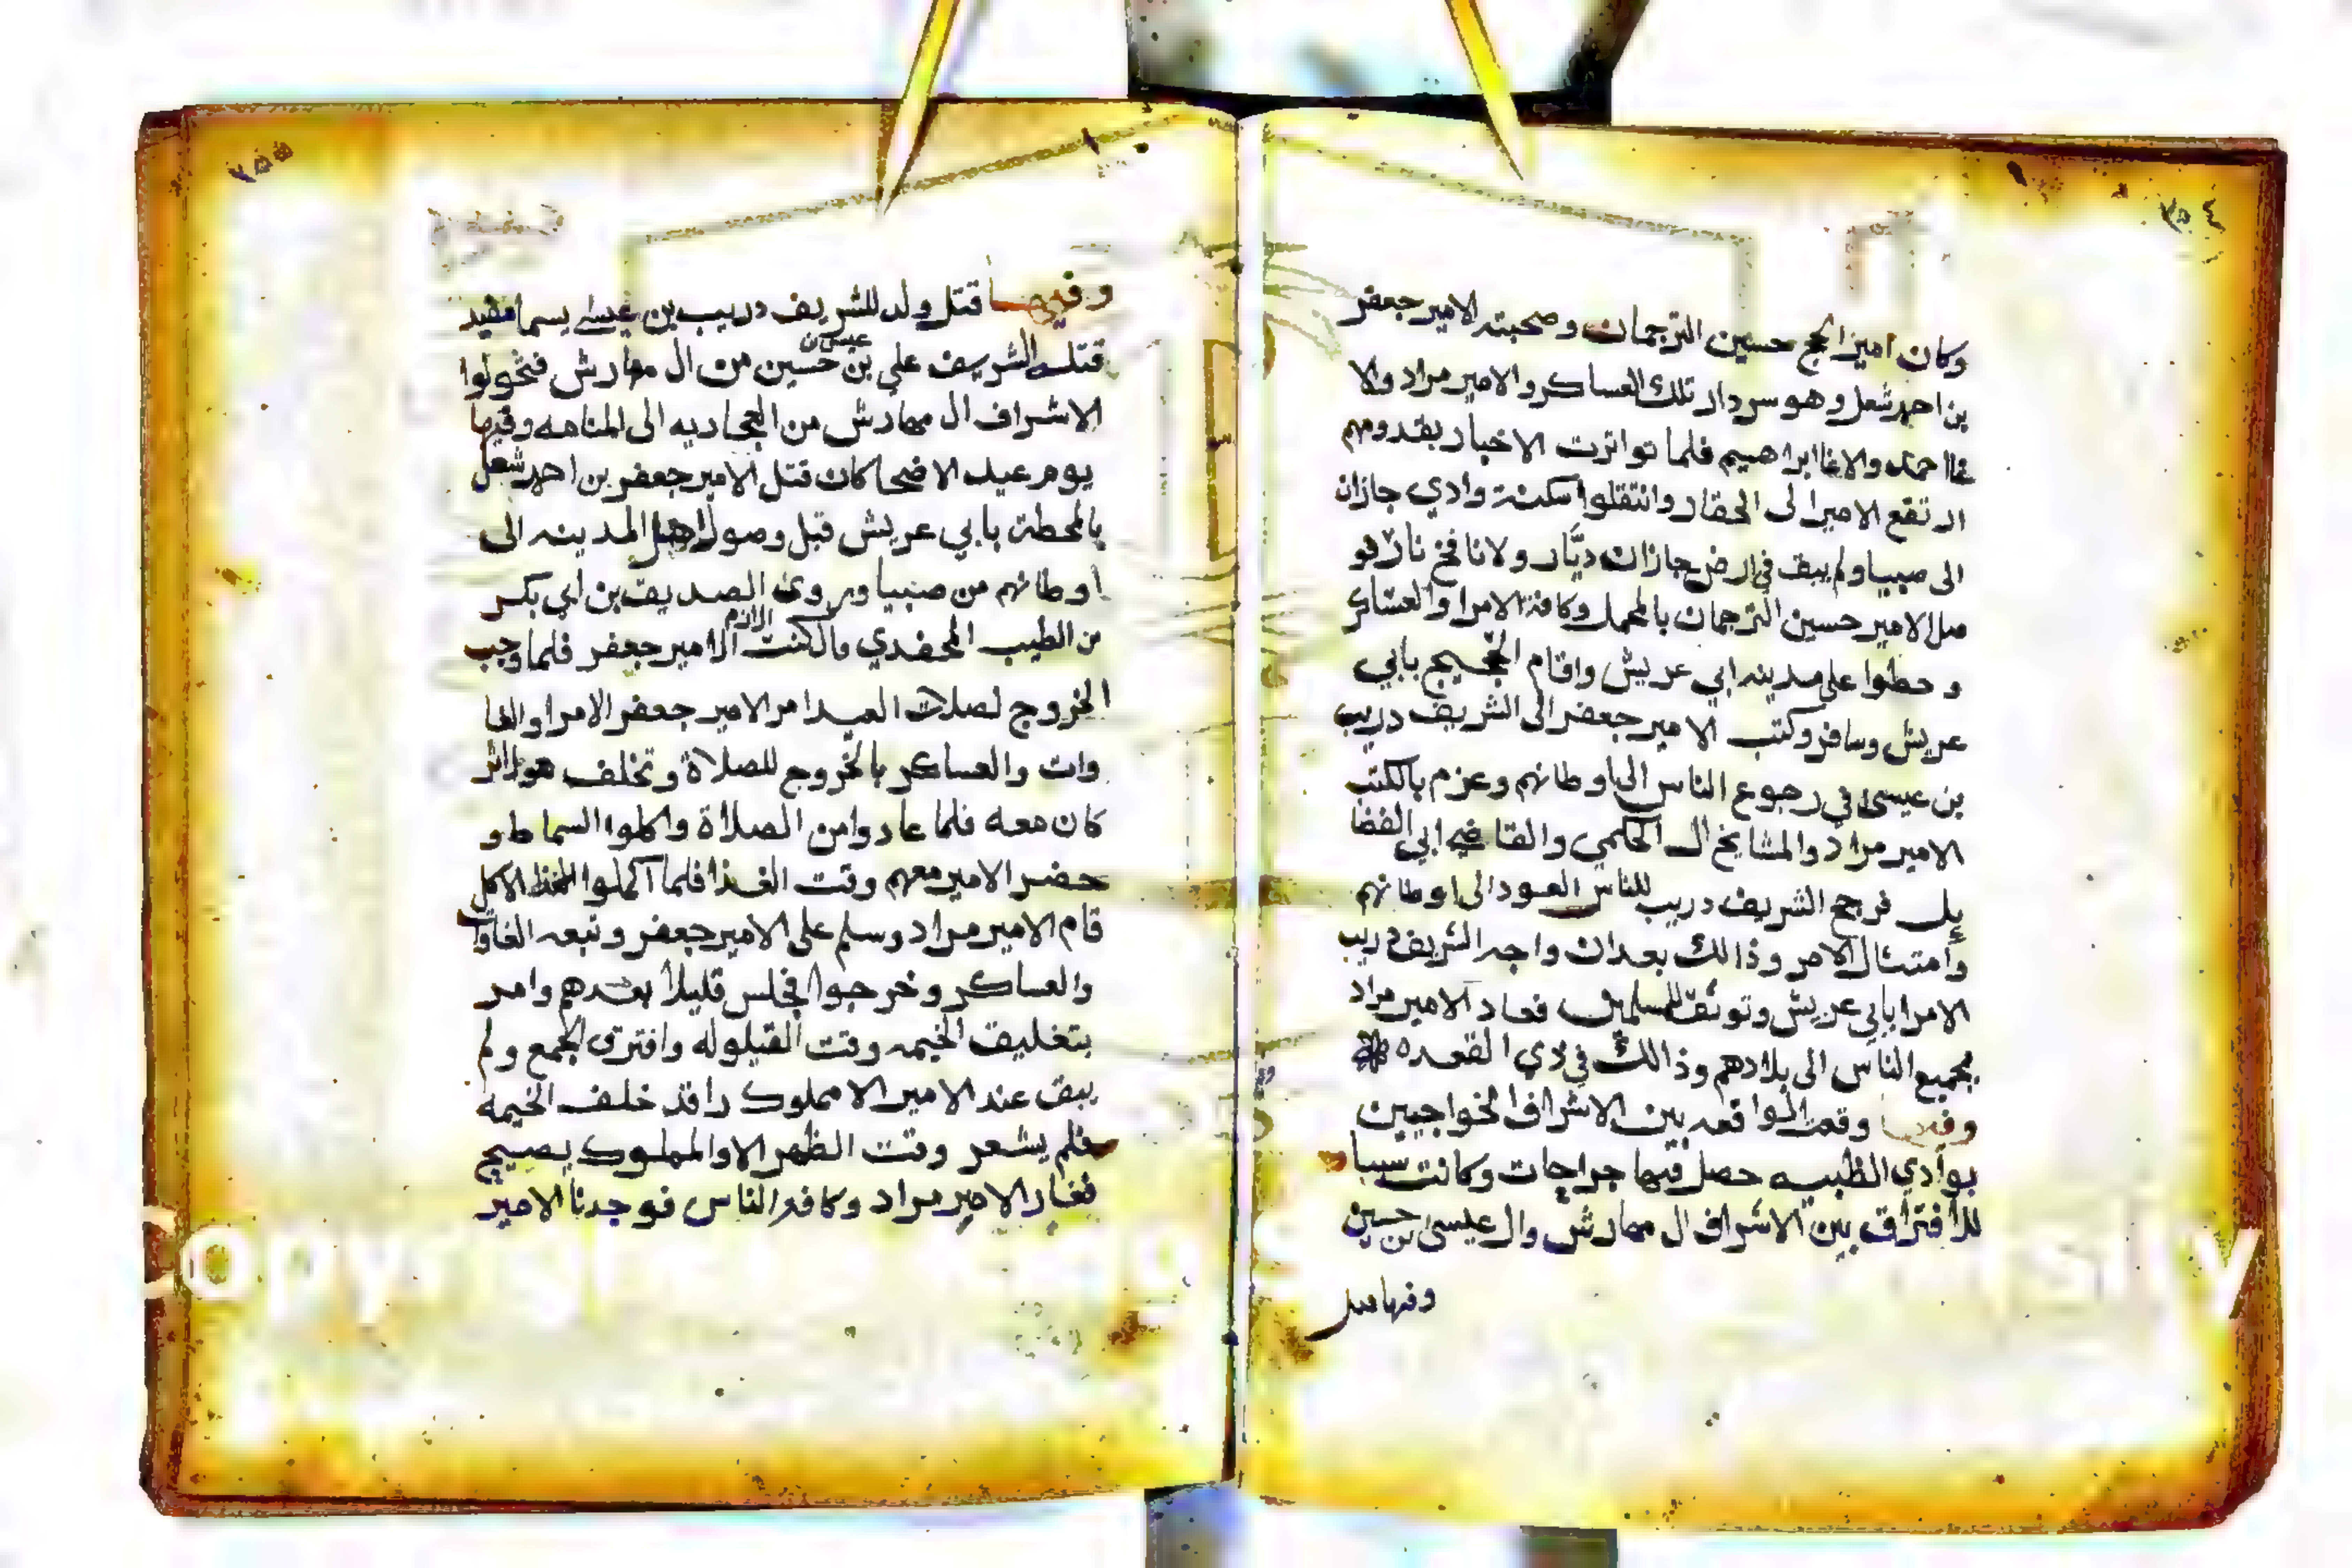 ٢٥٤
وكان امير الحج حسين الترجمان وصحبته الامير جعفر
بن احمد شعل وهو سردار تلك العساكر والامير مراد والا
غا احمد والاغا ابراهيم فلما تواترت الاخبار بقدومهم
ارتفع الامير الى الحقار وانتقلوا سكنة وادي جازان
الى صبيا ولم يبق في ارض جازان ديّار ولا نافخ نار فو
صل الامير حسين الترجمان بالمحمل وكافة الامرا والعساكر
و حطوا على مدينه ابي عريش واقام الحجيج بابي
عريش وسافر وكتب الامير جعفر الى الشريف دريب
بن عيسى في رجوع الناس الى اوطانهم وعزم بالكتب
الامير مراد والمشايخ ال الحكمي والقاضي ابي الفضا
يل فرجح الشريف دريب للناس العود الى اوطانهم
وامتثال الامر وذالك بعد ان واجه الشريف دريب
الامرا بابي عريش وتوثق للمسلمين فعاد الامير مراد
بجميع الناس الى بلادهم وذالك في ذي القعده
وفيها وقعت الواقعه بين الاشراف الخواجيين
بوادي الظبيه حصل فيها جراحات وكانت سببا
للافتراق بين الاشراف ال مهارش وال عيسى بن حسين
وفيها
٢٥٥
وفيها قتل ولد للشريف دريب بن عيسى يسما
قتله الشريف علي بن عيسى بن حسين من ال مهارش فتحولوا
الاشراف ال مهارش من الججاديه الى المنامه وفيها
يوم عيد الاضحا كان قتل الامير جعفر بن احمد شعل
بالمحطة بابي عريش قبل وصول اهل المدينه الى
اوطانهم من صبيا وروى الصديق بن ابي بكر
بن الطيب المحفدي قال كنت الازم الامير جعفر فلما وجب
الخروج لصلات العيد امر الامير جعفر الامرا والغا
وات والعساكر بالخروج للصلاة وتخلف هو
كان معه فلما عادوا من الصلاة واكلوا السماط و
حضر الامير معهم وقت الغذا فلما اكملوا الاكل
قام الامير مراد وسلم على الامير جعفر وتبعه الغاوات
والعساكر وخرجوا فجلس قليلا بعدهم وامر
بتغليق الخيمه وقت القيلوله وافترق الجمع ولم
يبق عند الامير الا مملوك راقد خلف الخيمه
فلم يشعر وقت الظهر الا والمملوك يصيح
فغار الامير مراد وكافة الناس فوجدنا الامير